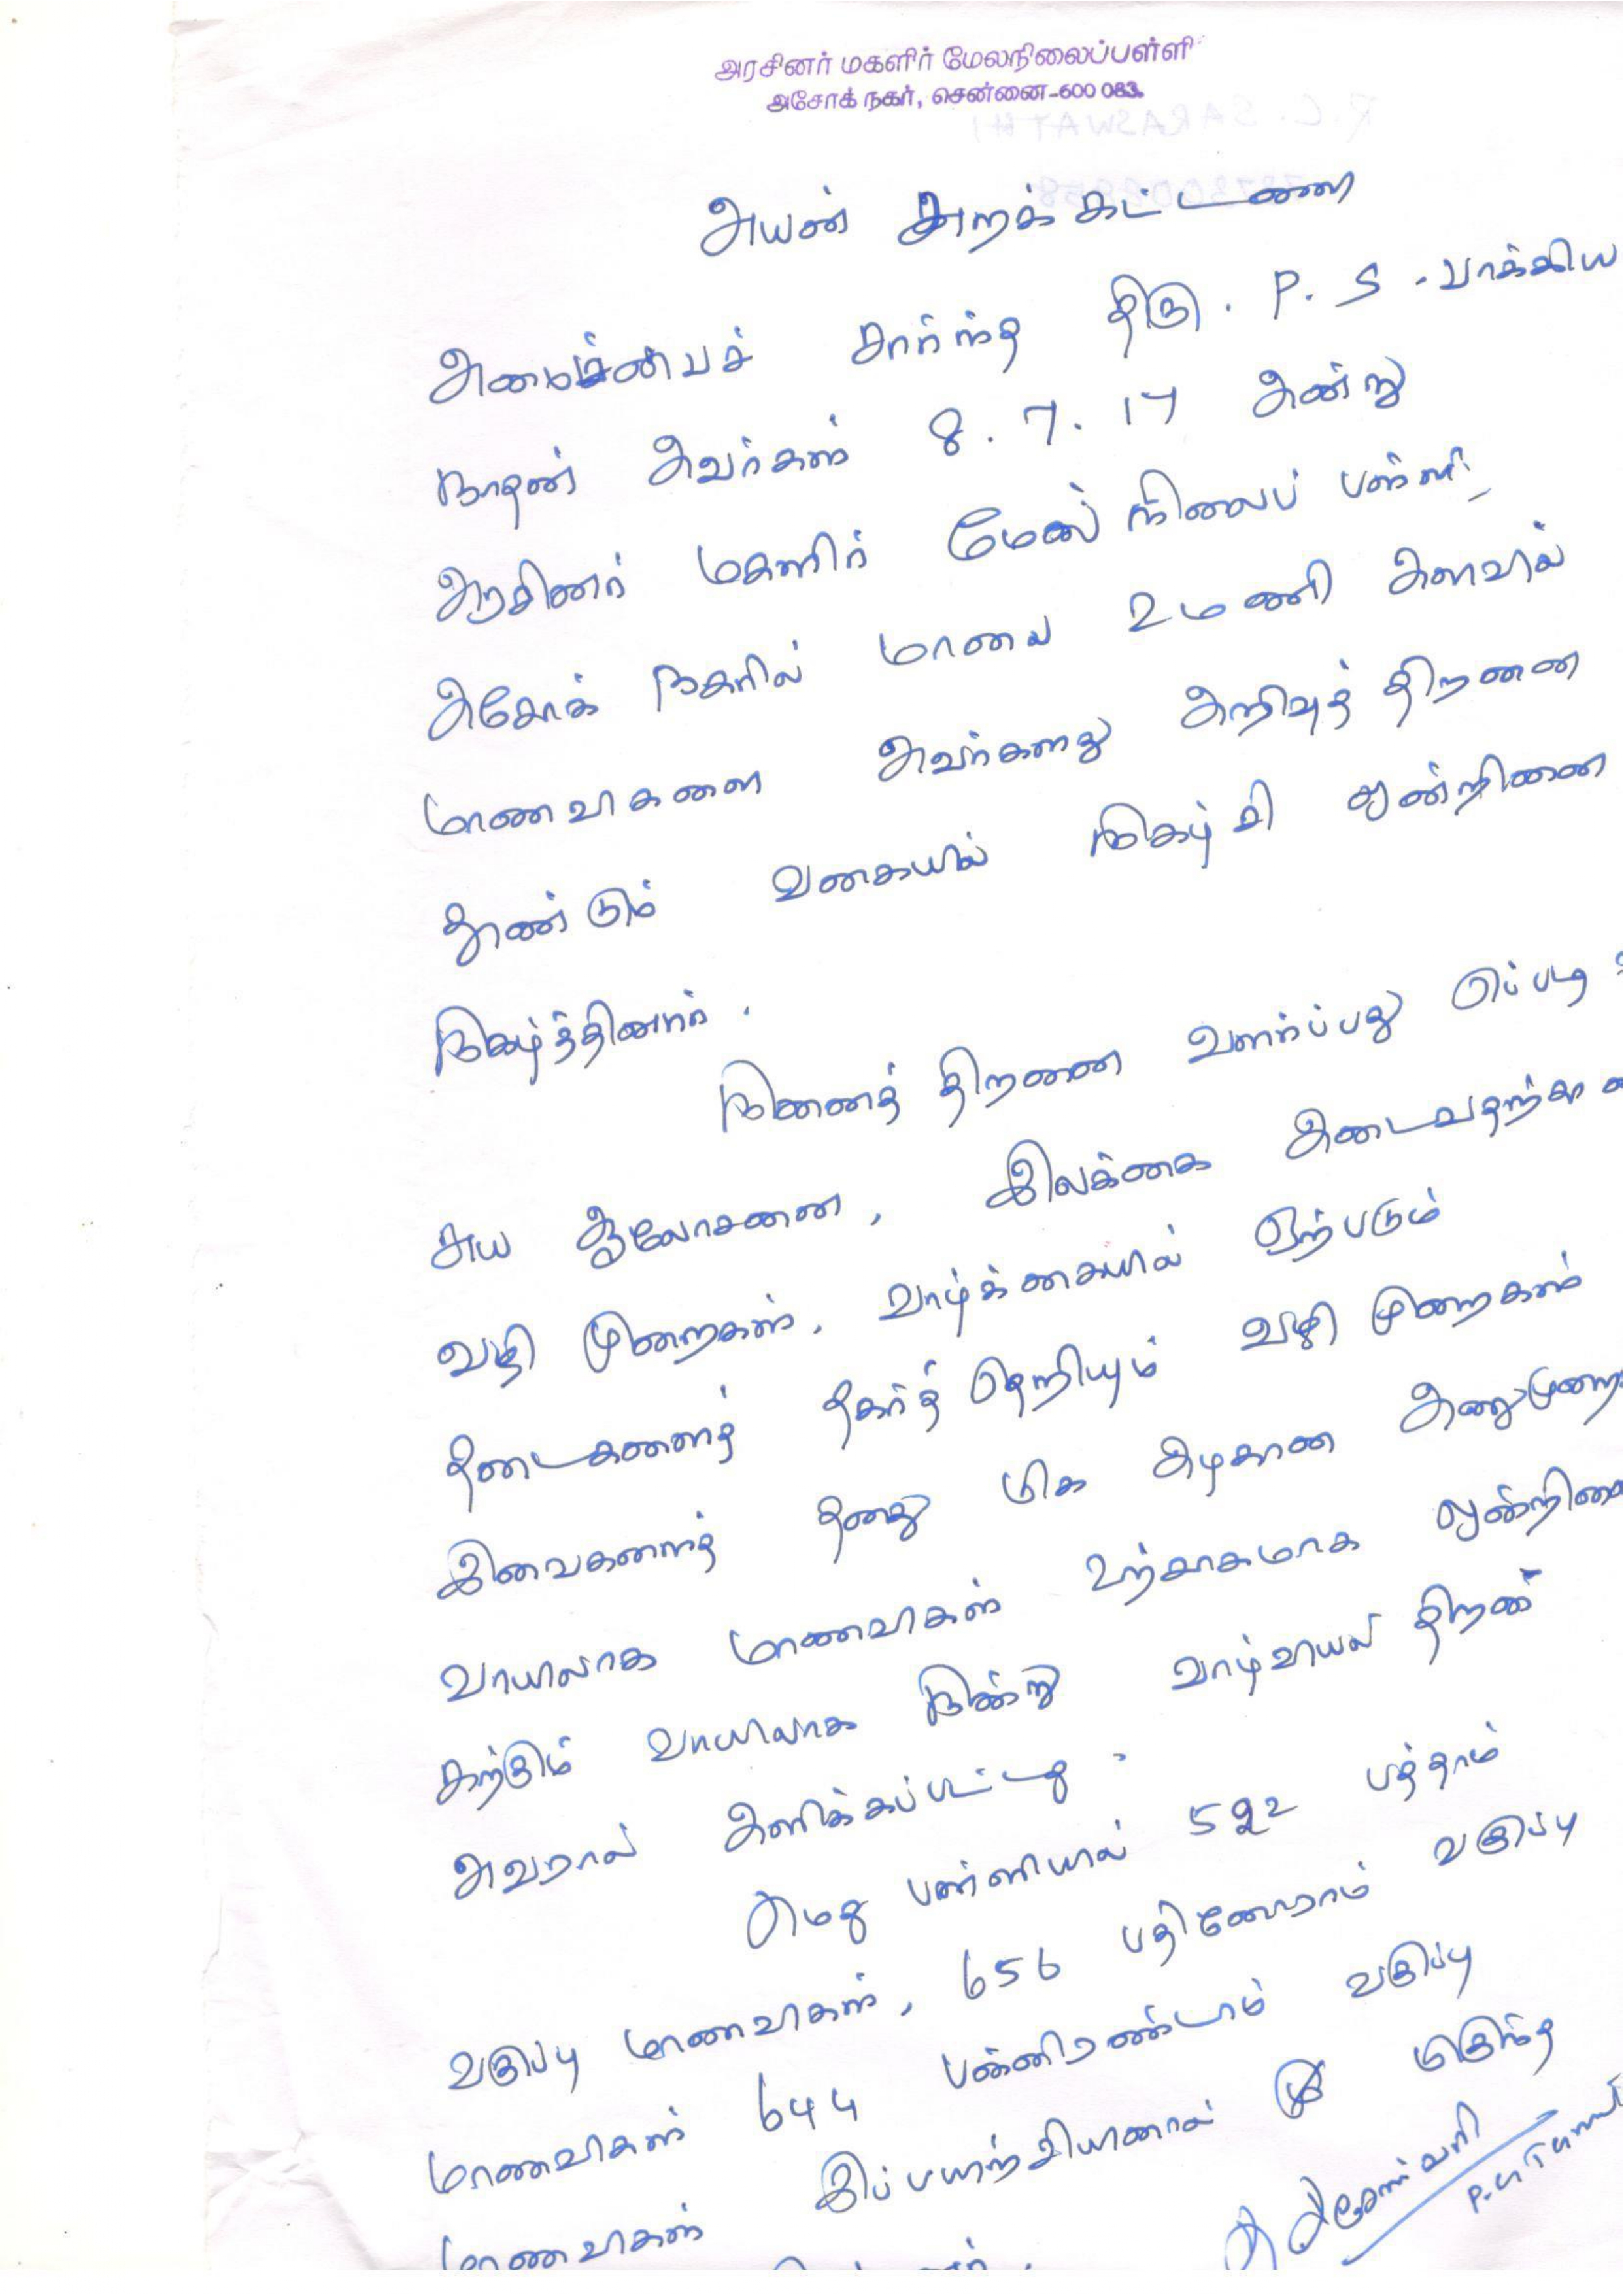 அரசினர் மகளிர் மேலநிலைப்பள்ளி
அசோக் நகர், சென்னை-600 083.
R.C. SARASWATHI
அயன் அறக்கட்டளை
அமைப்பைச் சார்ந்த திரு. P. S. பாக்கிய
நாதன் அவர்கள் 8.7.17 அன்று
அரசினர் மகளிர் மேல்நிலைப் பள்ளி,
அசோக் நகரில் மாலை 2 மணி அளவில்
மாணவிகளை அவர்களது அறிவுத் திறனை
தூண்டும் வகையில் நிகழ்ச்சி ஒன்றினை
நிகழ்த்தினார்.
நினைத் திறனை வளர்ப்பது எப்படி
சுய ஆலோசனை, இலக்கை அடைவதற்கான
வழி முறைகள், வாழ்க்கையில் ஏற்படும்
தடைகளைத் தகர்த் தெறியும் வழி முறைகள்
இவைகளைத் தனது மிக அழகான அணுமுறை
வாயிலாக மாணவிகள் உற்சாகமாக ஒன்றினை
கற்கும் வாயிலாக நின்று வாழ்வியல் திறன்
அவரால் அளிக்கப்பட்டது.
எமது பள்ளியில் 592 பத்தாம்
வகுப்பு மாணவிகள், 656 பதினோறாம் வகுப்பு
மாணவிகள் 644 பன்னிரண்டாம் வகுப்பு
மாணவிகள் இப்பயிற்சியினால் மிகுந்த